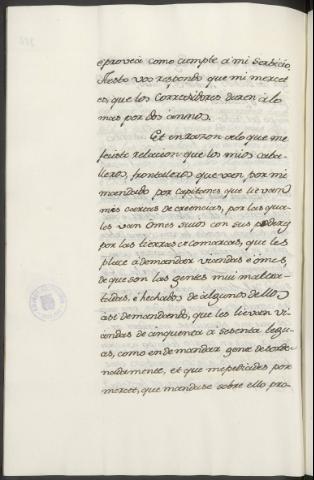 eprovea como cumple á mi Serbicio,
Aesto vos respondo que mi mercet
es, que los Corregidores duren á lo
mas por dos annos.
Et en razon de lo que me
feciste relacion que los mios caba-
lleros, fronteleros que van, por mi
mandado por capitanes que llevan
mis cartas de creencias, por las qua-
les van omes suios con sus poderes
por las tierras é comarcas, que les
place á demandar viandas é omes,
de que son las gentes mui maltra-
tadas, é hechados de algunos dellos
asi demandando, que les lleven vi-
andas de cinquenta á sesenta legu-
as, como en demandar gente desorde-
nadamente, et que me pediades por
mercet, que mandase sobre ello pro-